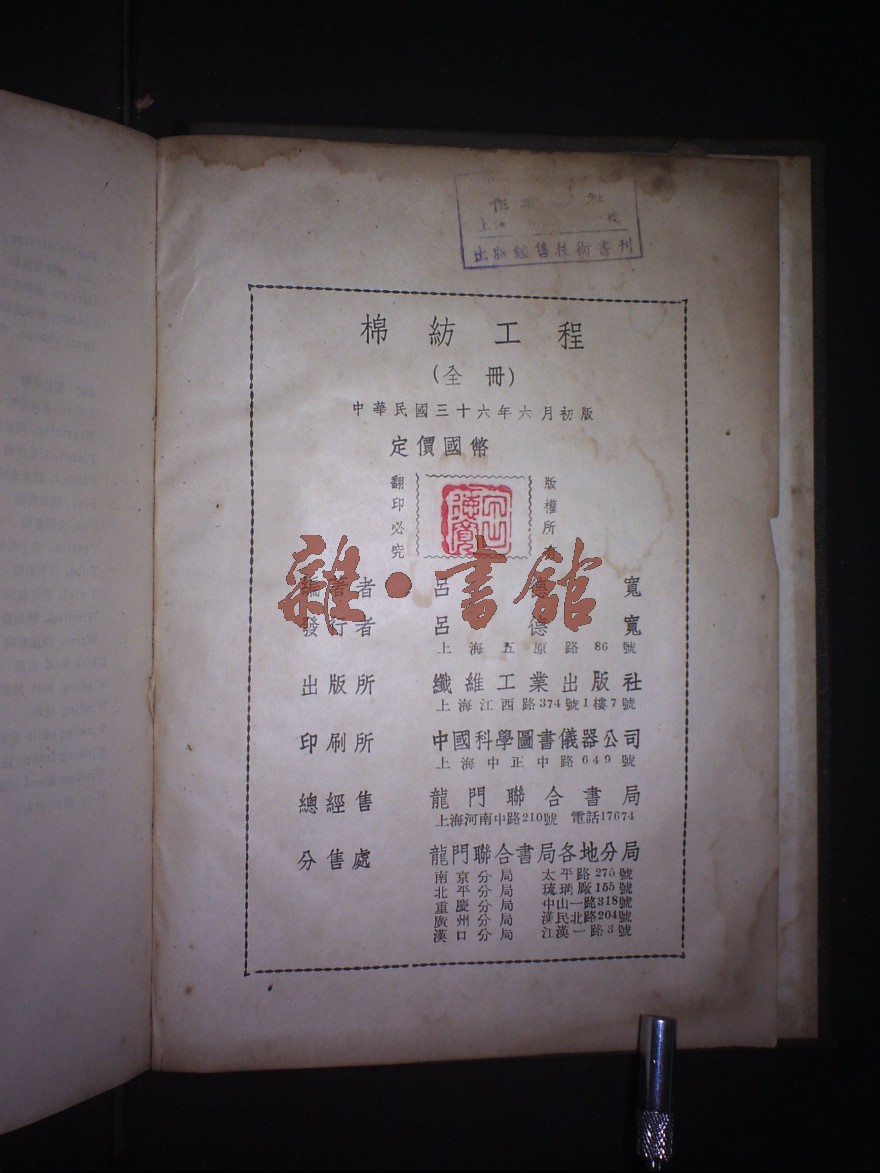 出版經售技術書刊
棉紡工程
(全冊)
中華民國三十六年六月初版
定價國幣
翻印必究
版權所有
雜·書館
編著者 呂德寬
發行者 呂德寬
上海五原路86號
出版所 纖維工業出版社
上海江西路374號1樓7號
印刷所 中國科學圖書儀器公司
上海中正中路649號
總經售 龍門聯合書局
上海河南中路210號 電話17674
分售處 龍門聯合書局各地分局
南京分局 太平路275號
北平分局 琉璃廠155號
重慶分局 中山一路318號
廣州分局 漢民北路204號
漢口分局 江漢一路3號